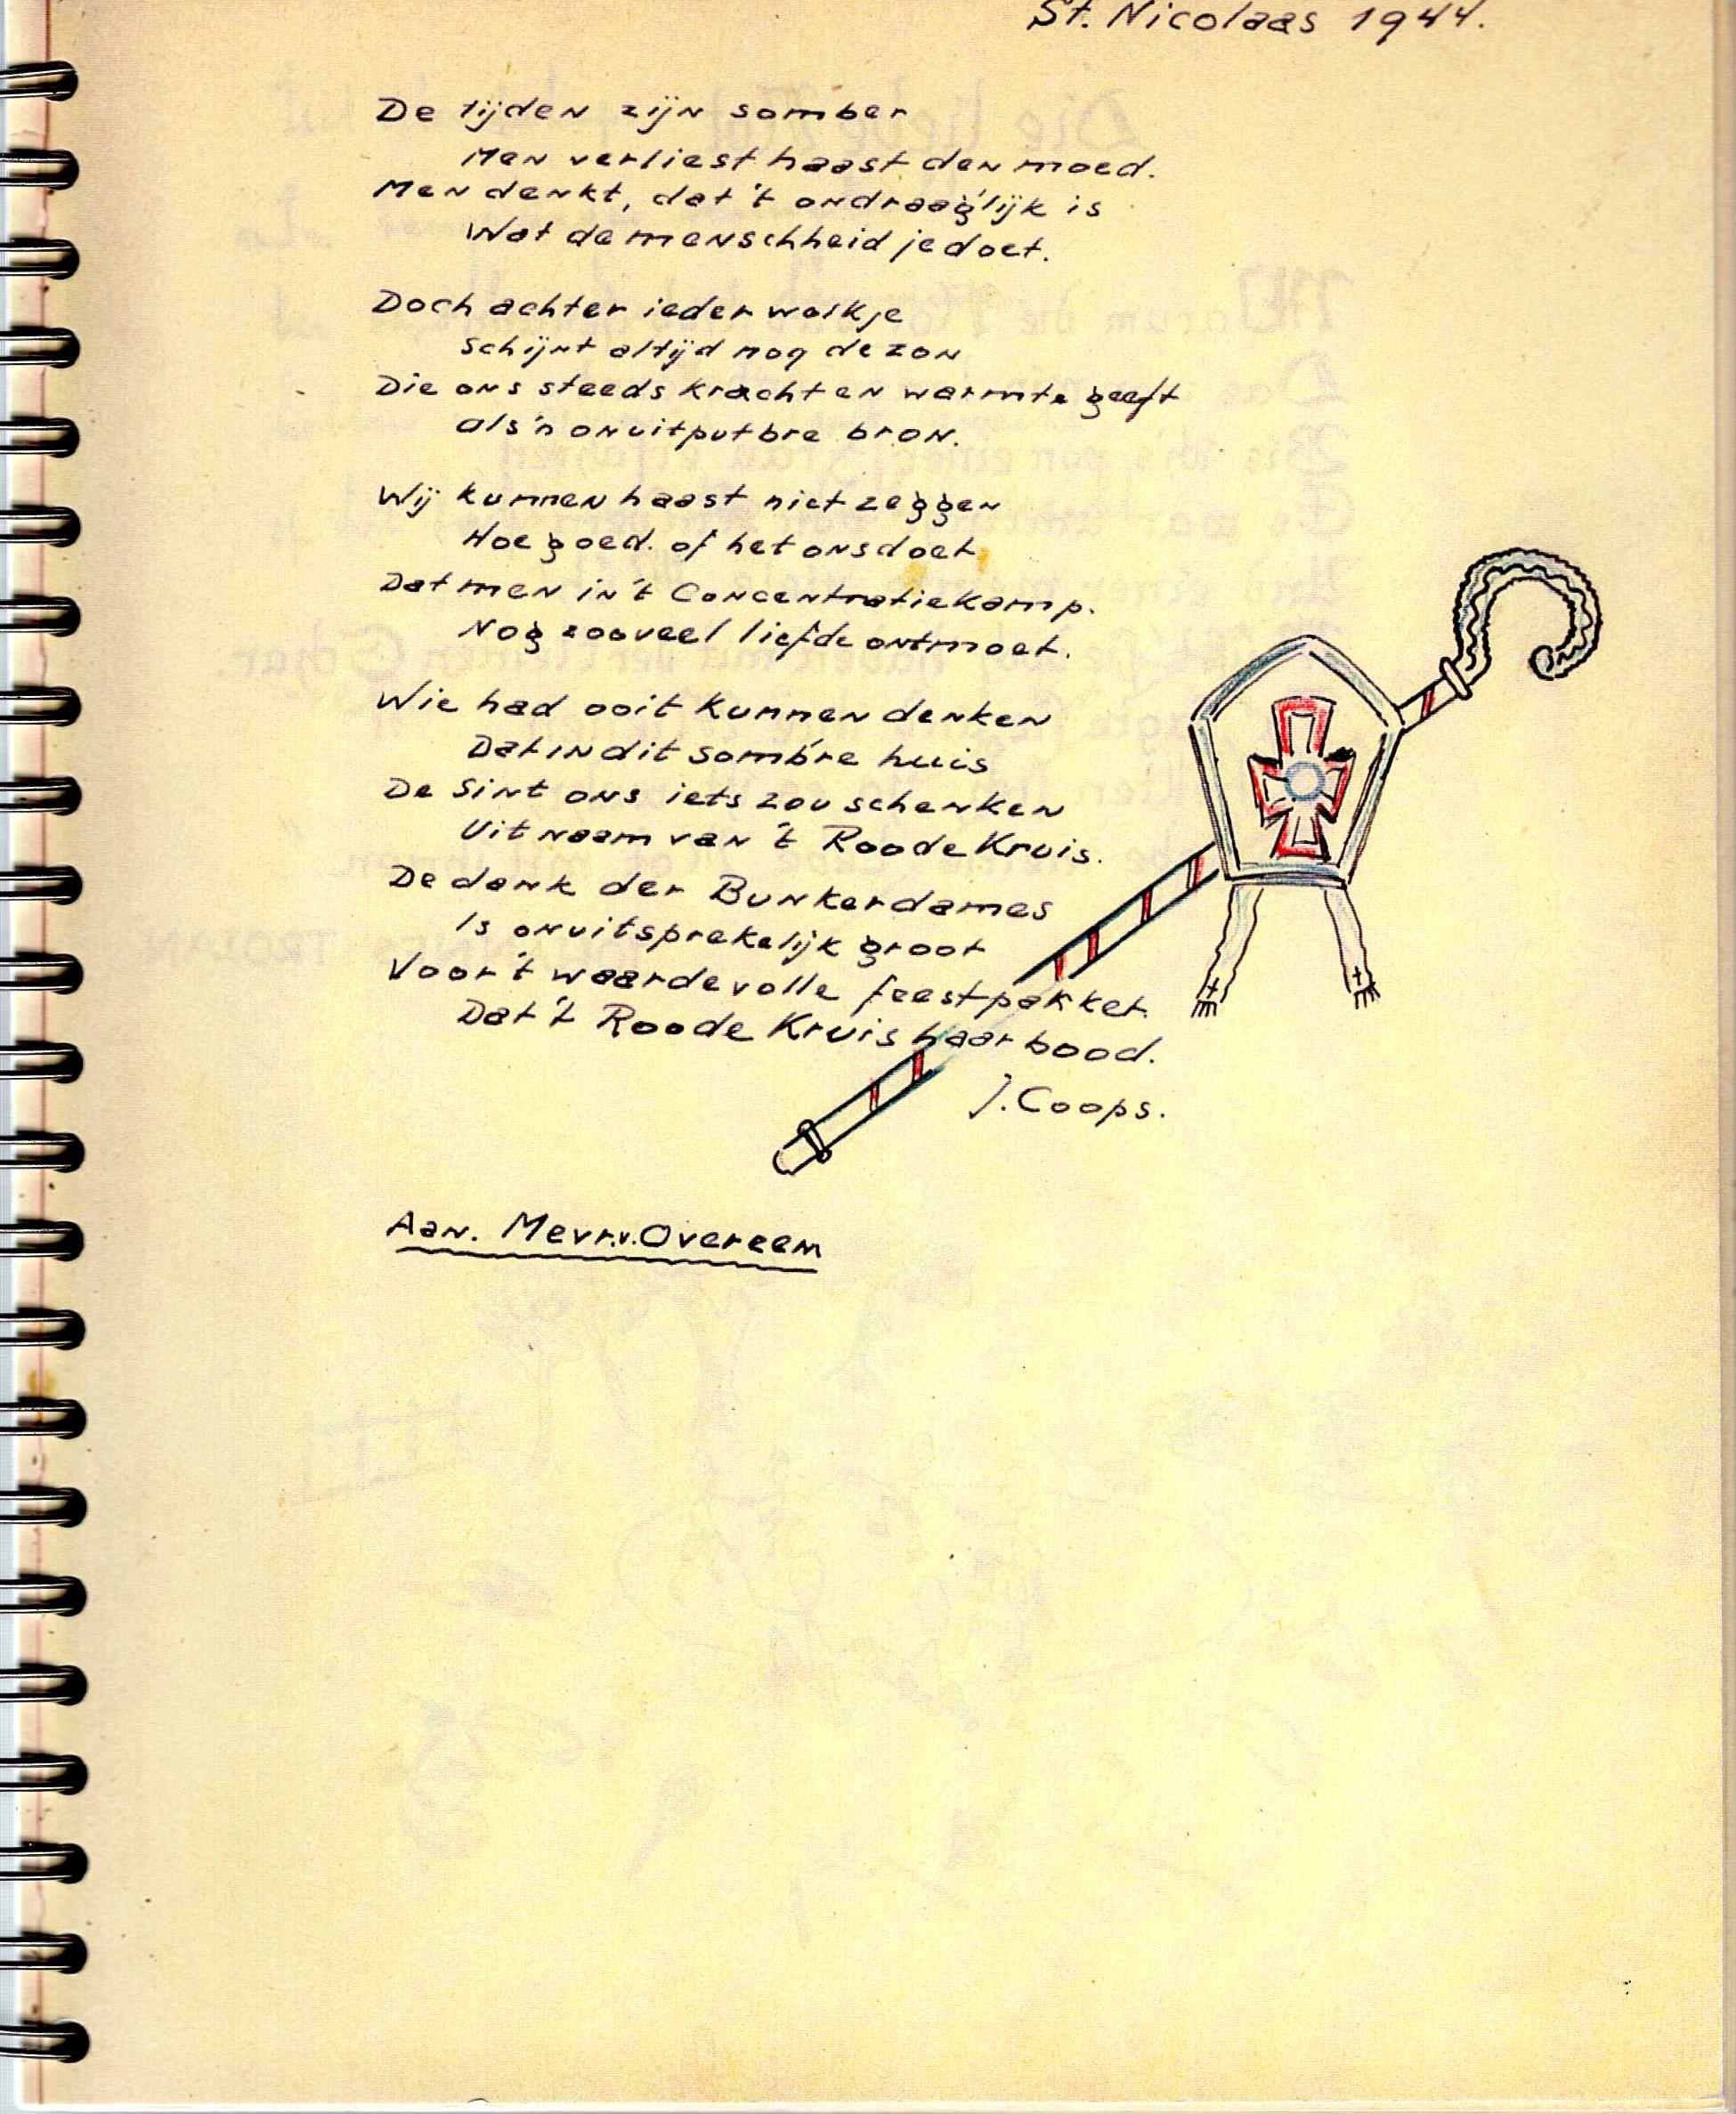 St. Nicolaas 1944.
De tijden zijn somber
Men verliest haast den moed.
Men denkt, dat 't ondraag'lijk is
Wat de menschheid je doet.
Doch achter ieder wolkje
Schijnt altijd nog de zon
Die ons steeds kracht en warmte geeft
als 'n onuitputbre bron.
Wij kunnen haast niet zeggen
Hoe goed. of het ons doet
Dat men in 't Concentratiekamp.
Nog zooveel liefde ontmoet.
Wie had ooit kunnen denken
Dat in dit somb're huis
De Sint ons iets zou schenken
Uit naam van 't Roode Kruis.
De dank der Bunkerdames
Is onuitsprekelijk groot
Voor 't waardevolle feestpakket
Dat 't Roode Kruis haar bood.
J. Coops.
Aan. Mevr. v. Overeem